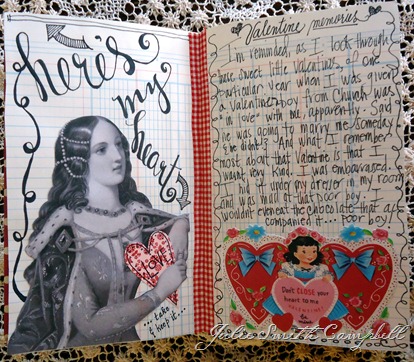 here's
my
heart
LOVE
...take
& keep it...
Valentine memories
I'm reminded, as I look through
these sweet little Valentines, of one
particular year when I was given
a Valentine. A boy from Church was
"in love" with me, apparently. Said
he was going to marry me someday.
(he didn't). And what I remember
most about that Valentine is that I
wasn't very kind. I was embarrassed.
I hid it under my dresser in my room
and was mad at that poor boy. I
wouldn't even eat the chocolate that
accompanied it.... poor boy!
Don't CLOSE your
heart to me
VALENTINE!
Julie Smith Campbell